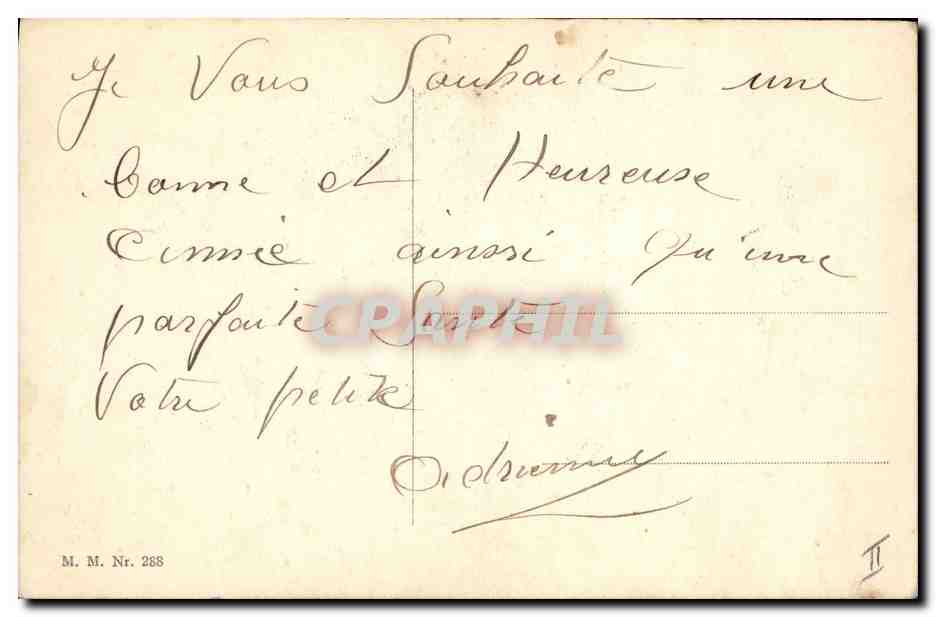 Je Vous Souhaite une
bonne et Heureuse
année ainsi qu'une
parfaite Santé
Votre petite
Adrienne
CPAPHIL
M. M. Nr. 288
II